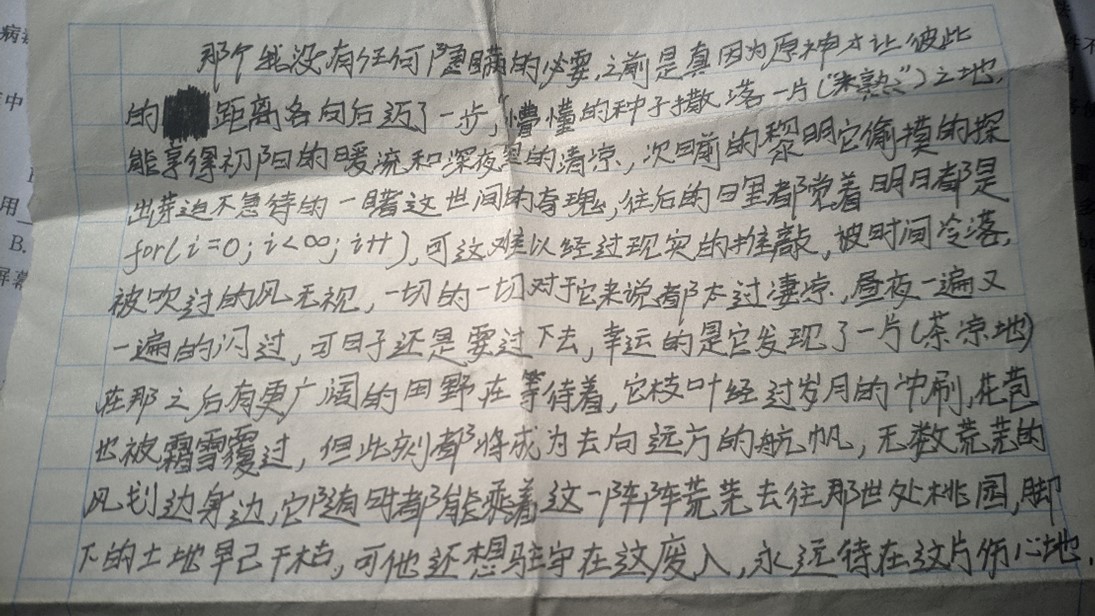 那个我没有任何隐瞒的必要,之前是真因为原神才让彼此
的 距离各向后迈了一步,"懵懂的种子撒落一片("未熟")之地,
能享得初阳的暖流和深夜里的清凉,次日前的黎明它偷摸的探
出芽迫不急待的一睹这世间的奇瑰,往后的日里都觉着明日都是
for(i=0;i<∞;i++),可这难以经过现实的推敲,被时间冷落,
被吹过的风无视,一切的一切对于它来说都太过凄凉,昼夜一遍又
一遍的闪过,可日子还是要过下去,幸运的是它发现了一片(荼凉地)
在那之后有更广阔的田野在等待着,它枝叶经过岁月的冲刷,花苞
也被霜雪覆过,但此刻都将成为去向远方的航帆,无数荒芜的
风划边身边,它随时都能乘着这一阵阵荒芜去往那世处桃园,脚
下的土地早已干枯,可他还想驻守在这废人,永远待在这片伤心地.
病毒
中
用
B.
屏幕